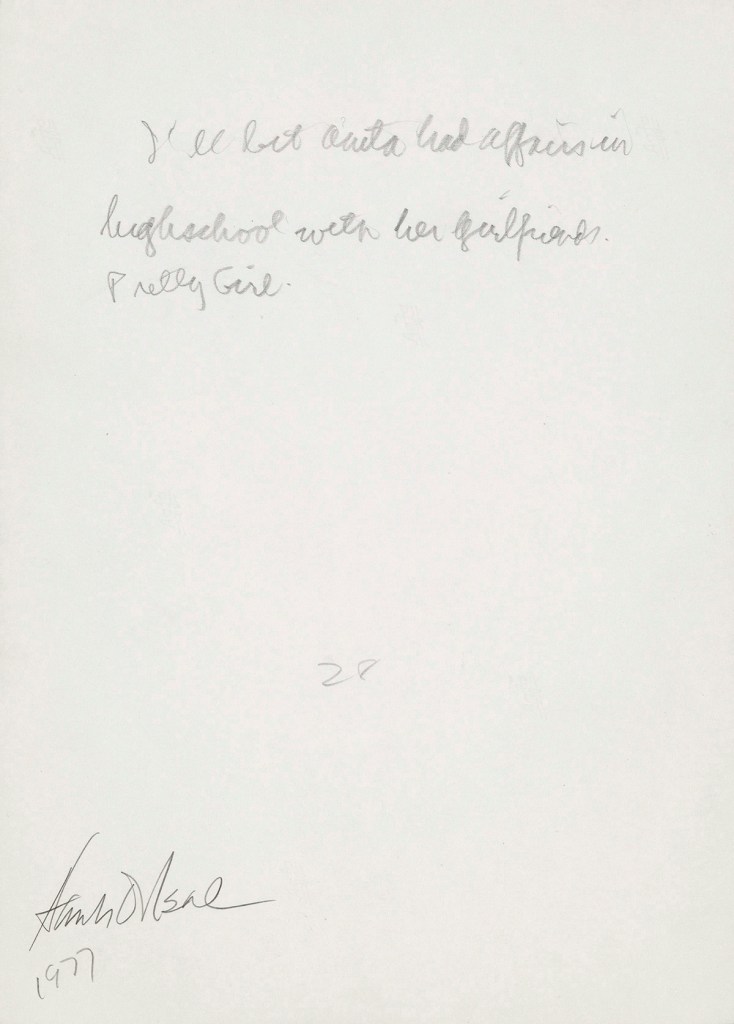 I'll bet Anita had affairs in
highschool with her girlfriends.
Pretty Girl.
28
Hank O'Neal
1977